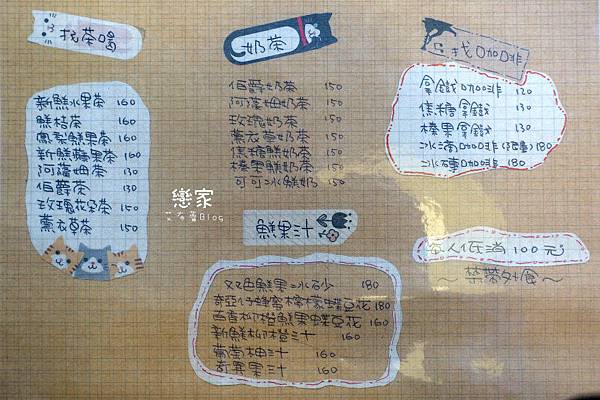 找茶喝
新鮮水果茶 160
鮮桔茶 160
鳳梨鮮果茶 160
新鮮蘋果茶 160
阿薩姆茶 130
伯爵茶 130
玫瑰花朵茶 150
薰衣草茶 150
奶茶
伯爵奶茶 150
阿薩姆奶茶 150
玫瑰奶茶 150
薰衣草奶茶 150
焦糖鮮奶茶 150
榛果鮮奶茶 150
可可冰鮮奶 150
找咖啡
拿鐵咖啡 120
焦糖拿鐵 130
榛果拿鐵 130
冰滴咖啡 180
冰磚咖啡 180
鮮果汁
双色鮮果冰砂 180
奇亞仔蜂蜜檸檬蝶豆花 180
西香柳橙鮮果蝶豆花 160
新鮮柳橙汁 160
葡萄柚汁 160
奇異果汁 160
每人低消100元
~禁帶外食~
戀家
艾布蕾Blog